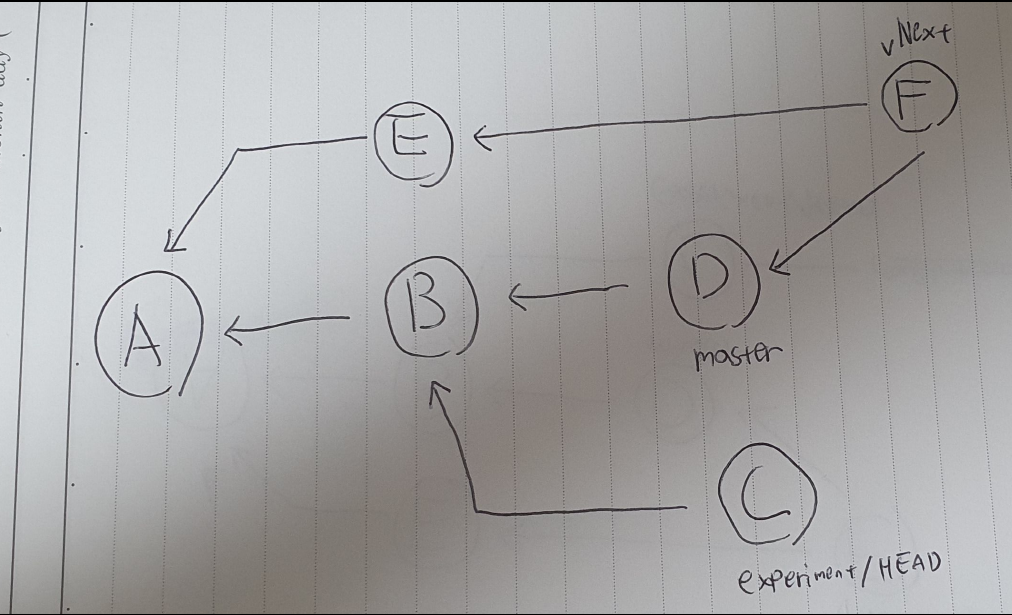 vNext
F
E
D
B
A
master
C
experiment/HEAD